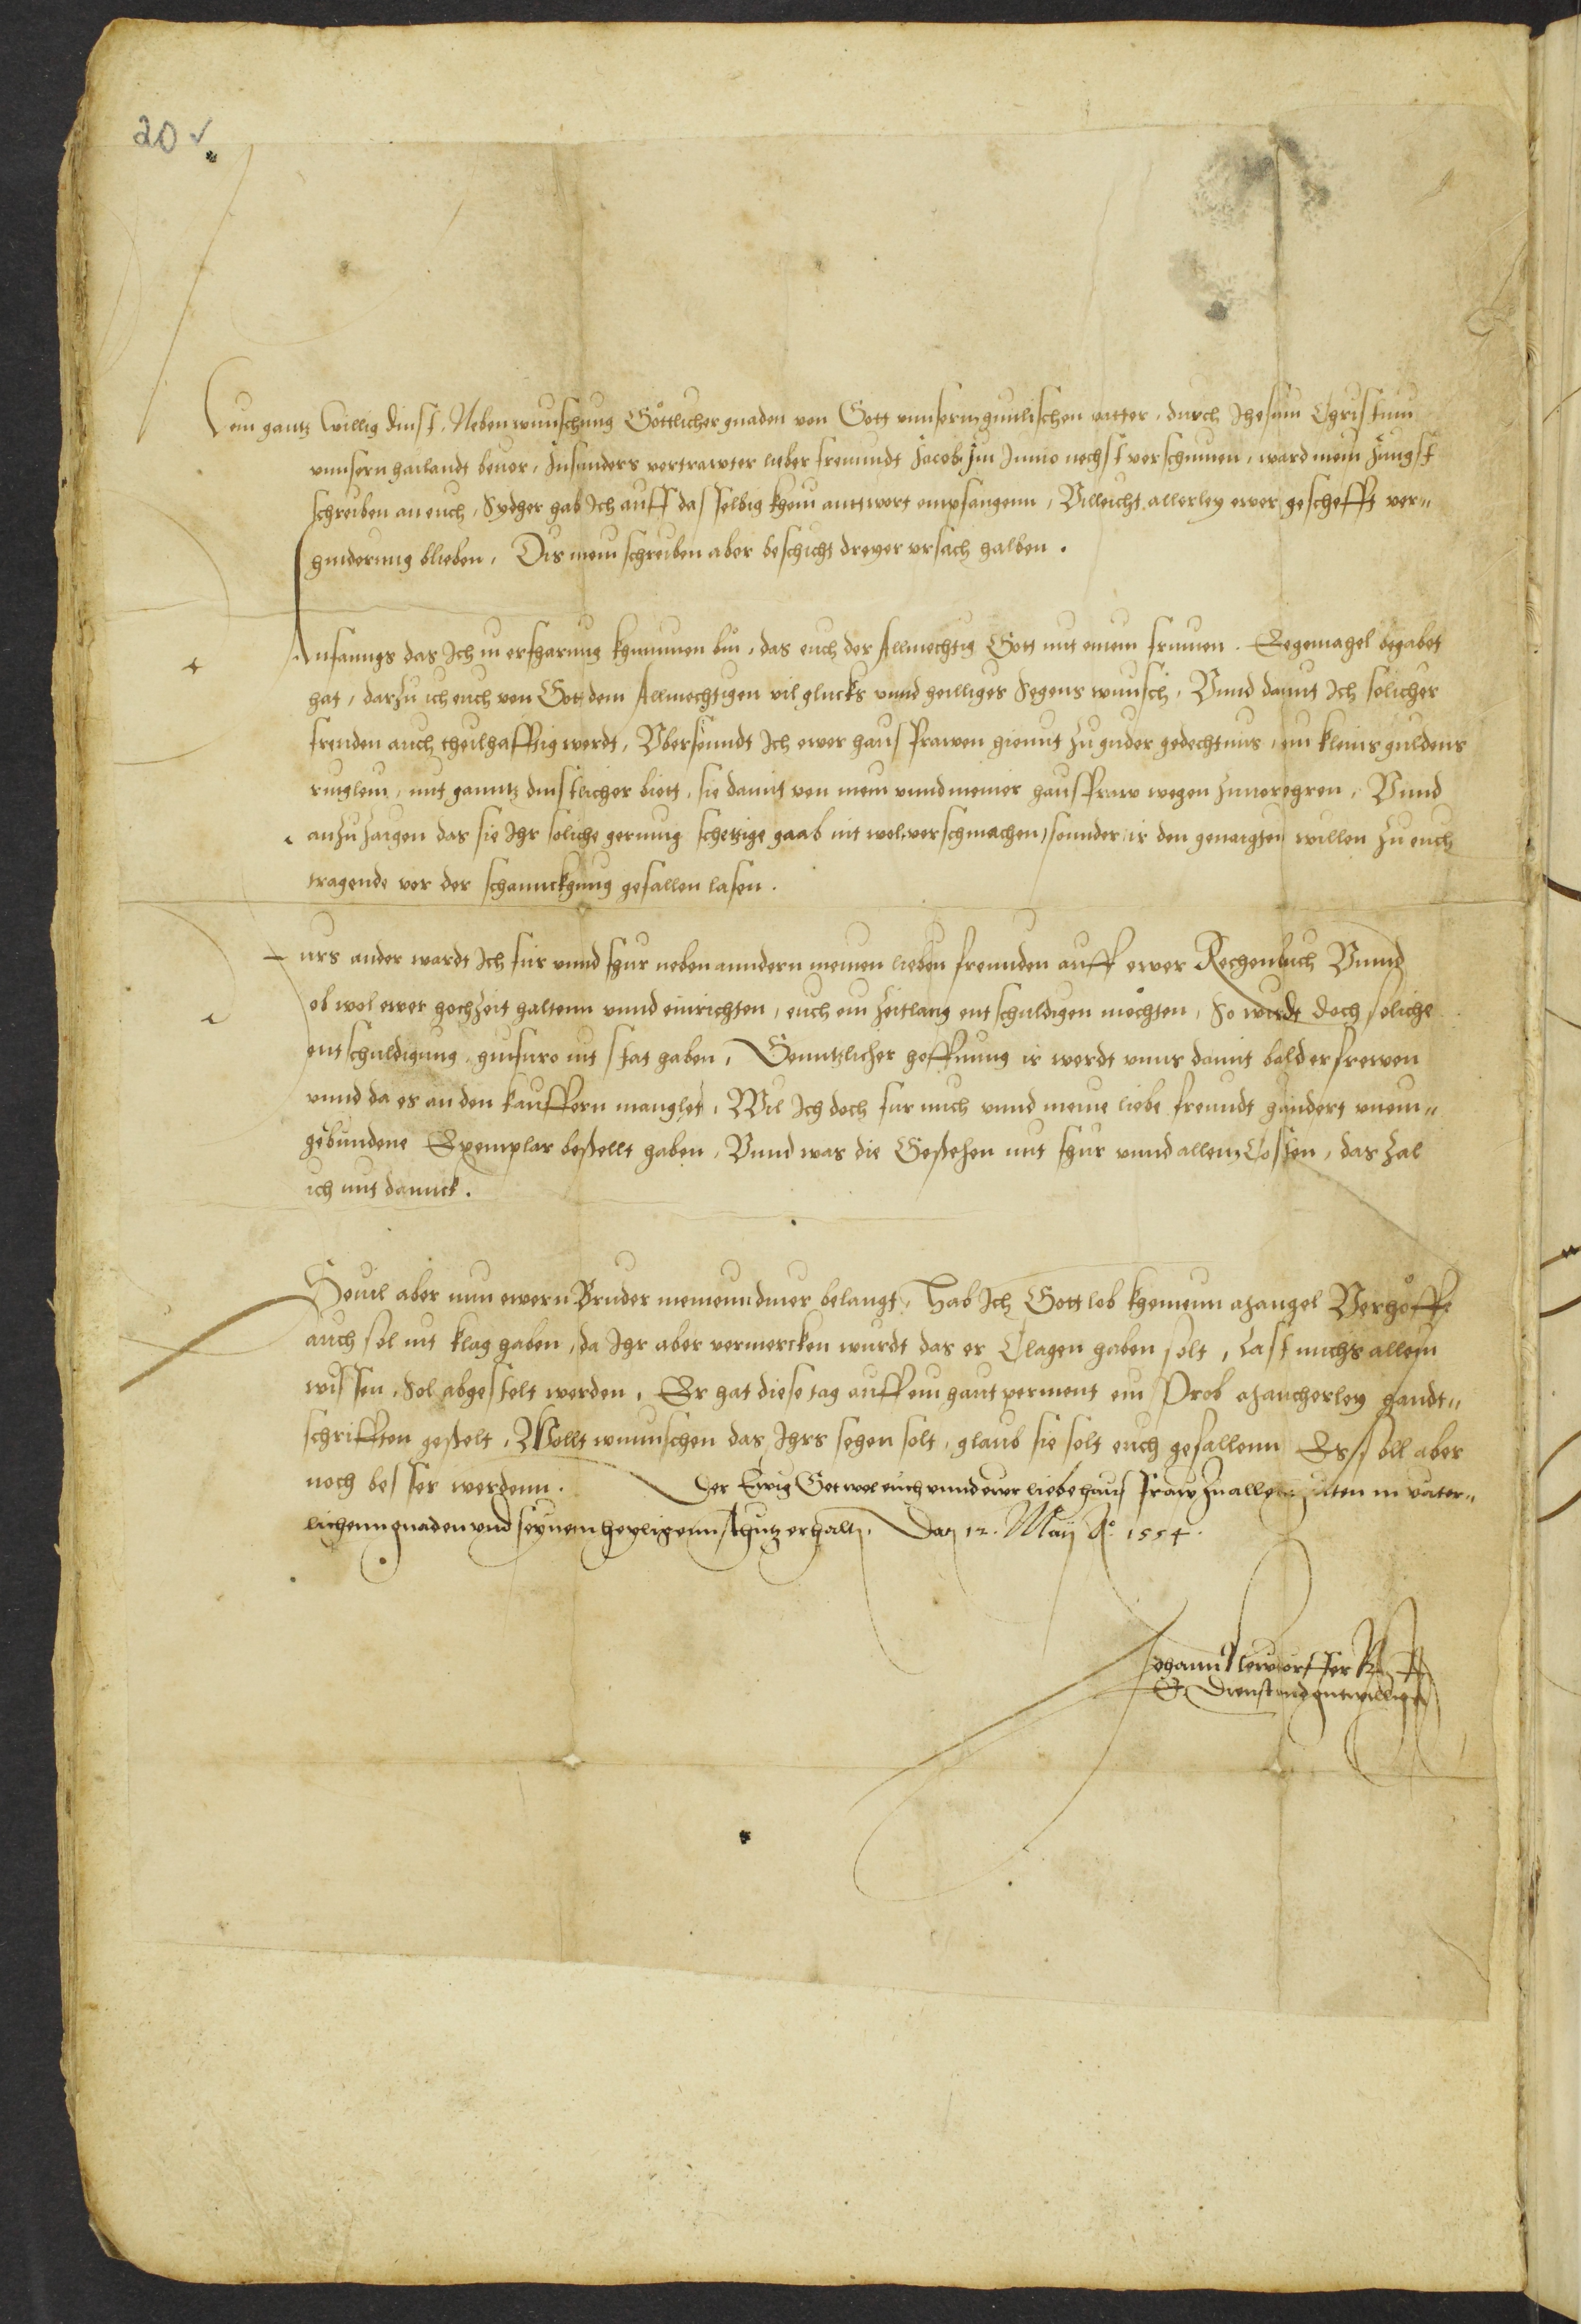 20 v
Mein gantz willig dinst, Neben wunschung Göttlicher gnaden von Gott vnnserm himlischen vatter, durch Jhesum Christum
vnnsern hailandt beuor, Insunders vertrawter lieber freundt Jacob, Im Junio nechst verschinnen, ward mein Jüngst
schreiben an euch, Sydher hab Ich auff dasselbig khein anttwort empfangenn, Villeicht allerley ewer gescheft ver¬
hinderung blieben, Dis mein schreiben aber beschicht dreyer vrsach halben.
Anfanngs das Ich in erfharung khummen bin, das euch der Allmechtig Gott mit einem frumen Eegemahel begabet
hat, darzu ich euch von Got dem Allmechtigen vil glucks vnnd heilliges Segens wunsch, Vnnd damit Ich solicher
freuden auch theilhafftig werdt, Vbersenndt Ich ewer hausfrawen hiemit zu guder gedechtnus, ein kleins guldens
ringlein, mit ganntz dinstlicher biett, sie damit von mein vnnd meiner hausfraw wegen zuuerehren, Vnnd
anzuzaigen das sie Ihr soliche gerinng schetzige gaab nit wol verschmachen, sonnder ir den genaigten willen zu euch
tragende vor der schannckhung gefallen lasen.
Furs ander wardt Ich fur vnnd fhur neben anndern meinen lieben freunden auff ewer Rechenbuch Vnnd
ob wol ewer hochzeit haltenn vnnd einrichten, euch ein zeitlang entschuldigen möchten, So wirdt doch soliche
entschuldigung, hinfuro nit stat haben, Genntzlicher hoffnung ir werdt vnns damit bald erfrewen
vnnd da es an den kauffern manglet, Wil Ich doch fur mich vnnd meine liebe freundt hundert vnein¬
gebundene Exemplar bestellt haben, Vnnd was die Gestehen mit fhur vnnd allem Costen, das zal
ich mit dannck.
Souil aber nun ewern Bruder meinenn diner belangt, Hab Ich Gott lob kheinenn mangel Verhoffe
auch sol nit klag haben, da Ihr aber vermercken wurdt das er Clagen haben solt, Last michs allein
wissen, Sol abgestelt werden, Er hat diese tag auff ein haut perment ein Prob mancherley handt¬
schrifften gestelt, Wollt wunschen das Ihrs sehen solt, glaub sie solt euch gefallenn Es soll aber
noch besser werdenn. Der Ewig Got wol euch vnnd ewer liebe hausfraw zu allen zeiten in vater¬
lichenn gnaden vnd seynem heyligenn schutz erhalten, Datum 12. Maij Ao. 1554.
Johann Newdorffer
E. Dienst vnd gutwilliger